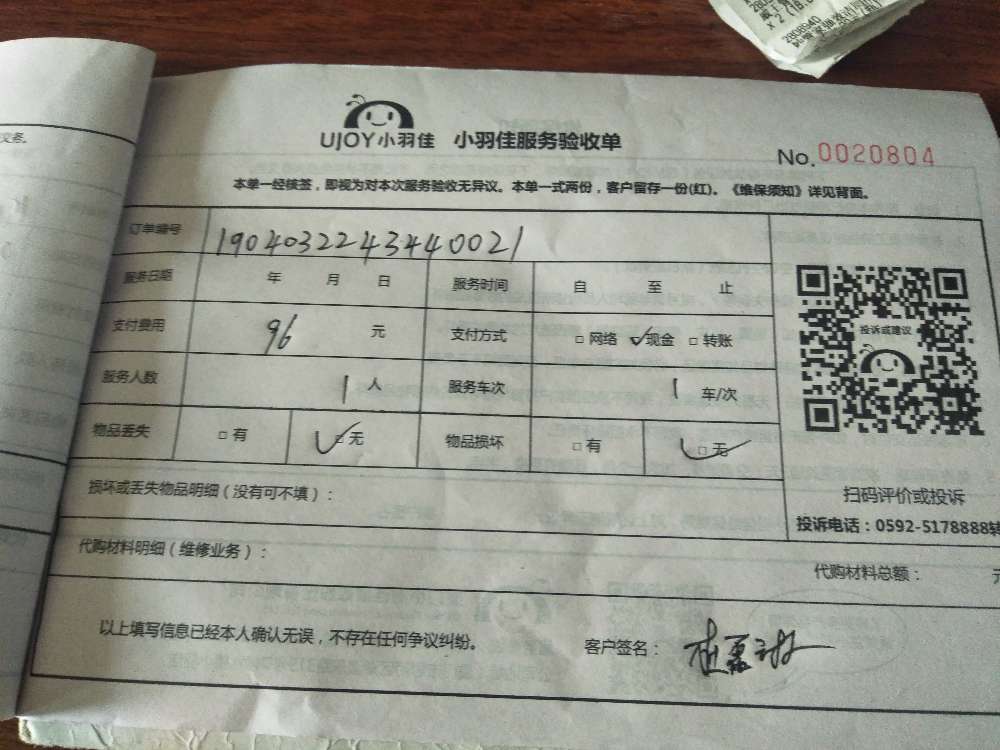 交务。
x 2 (18.
2808940
UJOY小羽佳 小羽佳服务验收单
No.0020804
本单一经核签，即视为对本次服务验收无异议。本单一式两份，客户留存一份(红)。《维保须知》详见背面。
订单编号 1904032243440021
服务日期 年 月 日 服务时间 自 至 止
支付费用 96 元 支付方式 □ 网络 ✓现金 □ 转账
投诉或建议
服务人数 1 人 服务车次 1 车/次
物品丢失 □ 有 ✓□ 无 物品损坏 □ 有 ✓□ 无
损坏或丢失物品明细（没有可不填）：
扫码评价或投诉
投诉电话：0592-5178888转
代购材料明细（维修业务）：
代购材料总额： 元
以上填写信息已经本人确认无误，不存在任何争议纠纷。 客户签名：